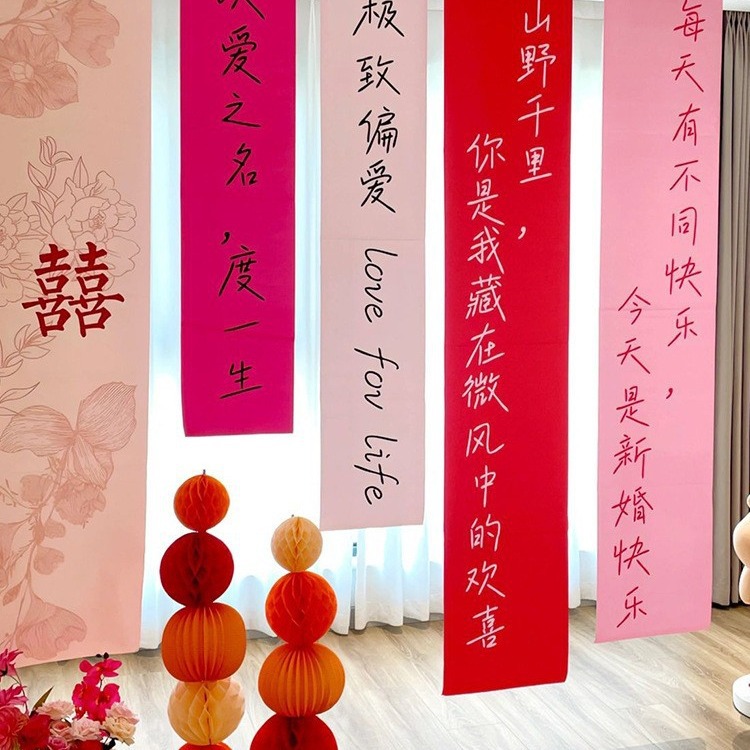 囍
以爱之名
,度一生
极致偏爱 love for life
山野千里,
你是我藏在微风中的欢喜
每天有不同快乐,
今天是新婚快乐